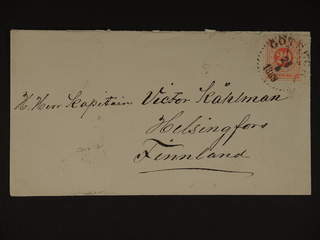 H. Herr Kapitain Victor Kåhlman
Helsingfors
Finnland